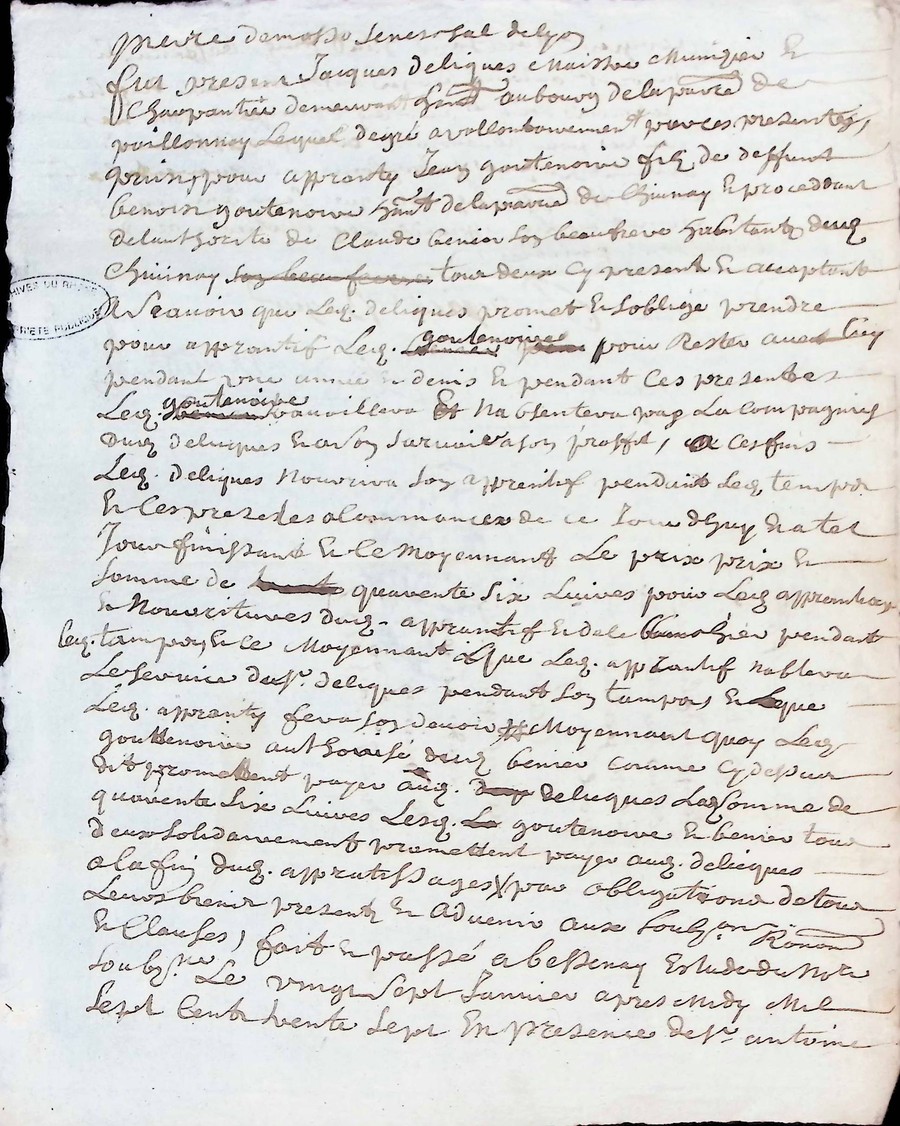 pierre demosso seneschal de lyon
fut present Jacques deliques maistre munizier et
Charpantier demeurant au bourg de la parr^e de
poillonnay Lequel de gré a vollontairement par ces presentes
prins pour apprenty Jean goutenoire fils de deffunt
benoist goutenoire hant de la parr^e de Chiunay et proceddant
de lauthorité de Claude benier son beaufrere habitant dud.
Chiunay son beaufrere tour deux Cy present et acceptant
A Scavoir que Led. deliques promet et soblige prendre
pour apprentif Led. goutenoire pour Rester avec luy
pendant une année et demis et pendant Ces presentes
Led. goutenoire travaillera Et nabsentera pas La Compagnies
dud. deliques Et a son service a son proffit, a Ces fins
Led. deliques nourrira son apprentif pendant Led. temps
Et Ces presentes a Commancer de ce Jour dhuy Et a tel
Jour finissant Et Ce Moyennant Le prix prix et
Somme de quarente Six Livres pour Led. apprentissage
Et Nourritures dud. apprantif Et de le pendant
Led. tamps, Et ce Moyennant que Led. apprantif
Le service du S^r. deliques pendant son tamps et que
Led. apprenty fera son devoir Moyennant quoy Led.
gouttenoire authorisé dud. benier comme Cy dessus
dit promettent payer aud. deliques La somme de
quarente Six Livres Lesd. goutenoire et benier tour
deux solidairement promettent payer aud. delicques
a la fin dud. appratissages par obligations de tour
Leurs biens presents et advenir aux soubz.on Renon
et Clauses, fait et passé a bessenay Estude du No^re
soubz^ne. Le vingt Sept Janvier apres Midy Mil
Sept Cent trente Sept En presence de S^r. antoine
ARCHIVES DU RHONE
PROPRIETE PUBLIQUE